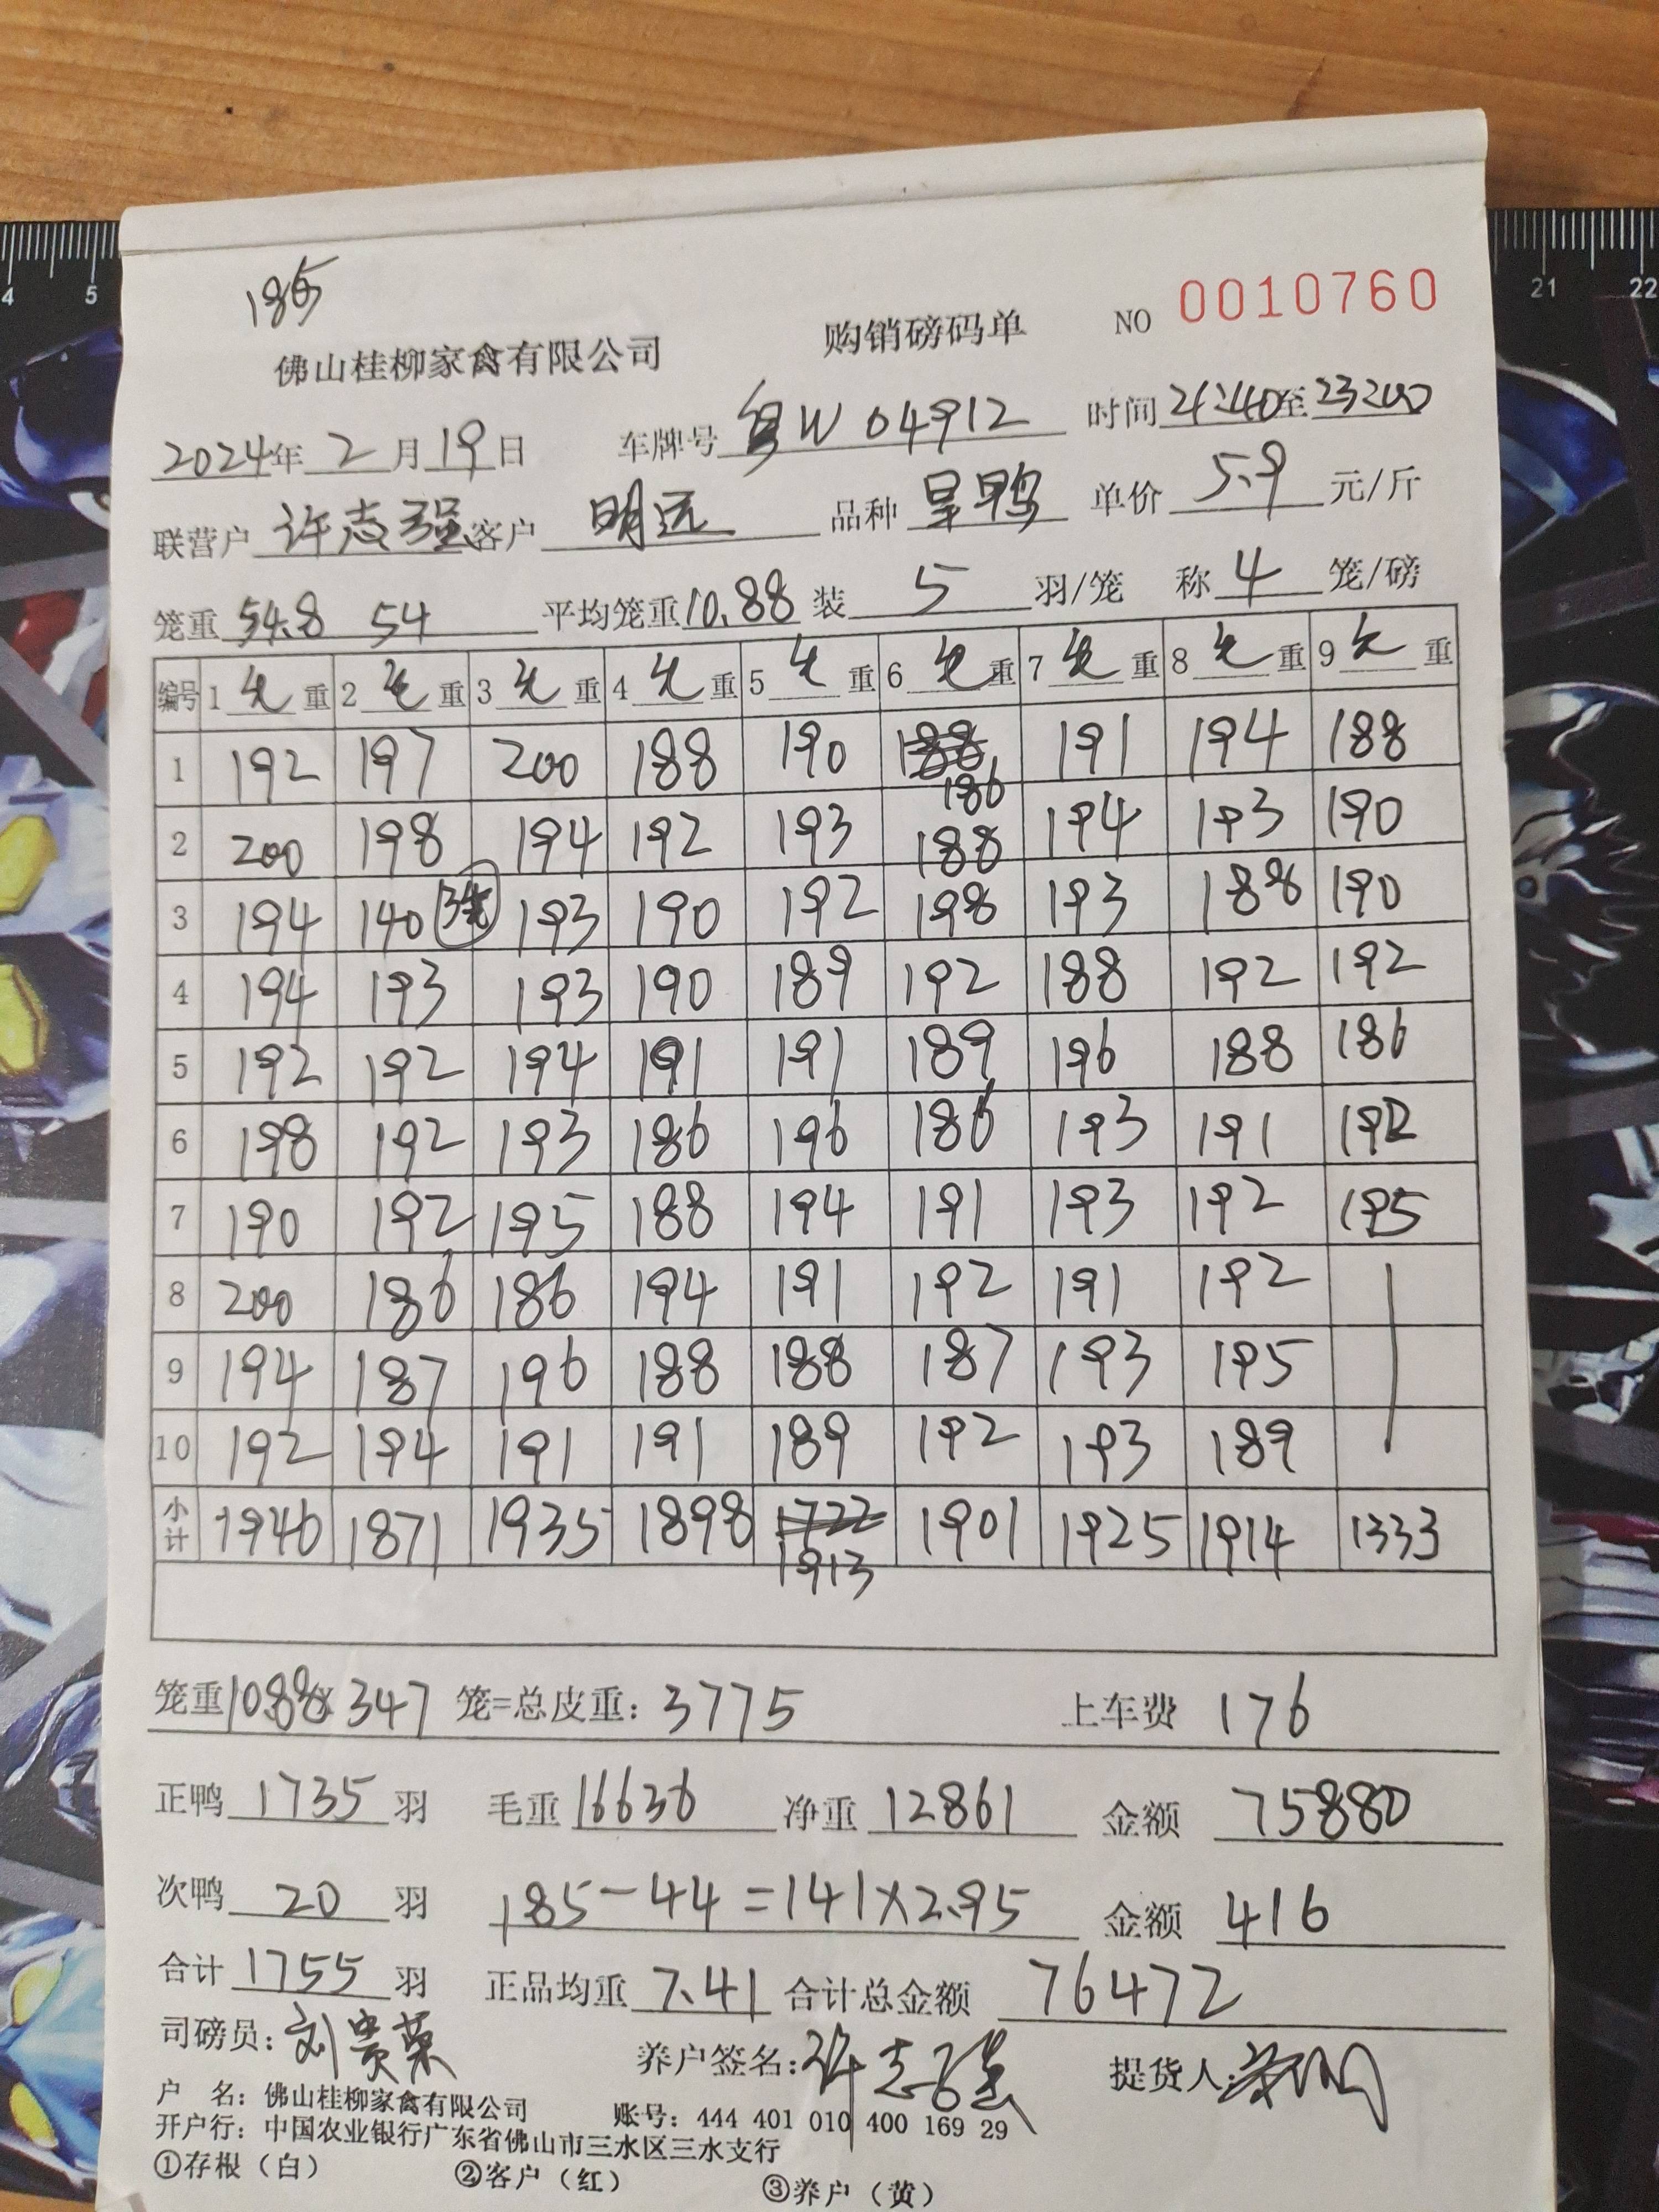 185
佛山桂柳家禽有限公司 购销磅码单 NO 0010760
2024年 2 月 19 日 车牌号 粤W 04912 时间 21:40 至 23:00
联营户 许志强 客户 明远 品种 旱鸭 单价 5.9 元/斤
笼重 54.8 54 平均笼重 10.88 装 5 羽/笼 称 4 笼/磅
编号 1 毛 重 2 毛 重 3 毛 重 4 毛 重 5 毛 重 6 毛 重 7 毛 重 8 毛 重 9 毛 重
1 192 197 200 188 190 186 191 194 188
2 200 198 194 192 193 188 194 193 190
3 194 140 3笼 193 190 192 198 193 188 190
4 194 193 193 190 189 192 188 192 192
5 192 192 194 191 191 189 196 188 186
6 198 192 193 186 196 186 193 191 192
7 190 192 195 188 194 191 193 192 195
8 200 186 186 194 191 192 191 192
9 194 187 196 188 188 187 193 195
10 192 194 191 191 189 192 193 189
小计 1946 1871 1935 1898 1722 1901 1925 1914 1333
1913
笼重 10.88 × 347 笼=总皮重: 3775 上车费 176
正鸭 1735 羽 毛重 16636 净重 12861 金额 75880
次鸭 20 羽 185-44=141×2.95 金额 416
合计 1755 羽 正品均重 7.41 合计总金额 76472
司磅员: 刘贵荣 养户签名: 许志强 提货人:
户 名: 佛山桂柳家禽有限公司 账号: 444 401 010 400 169 29
开户行: 中国农业银行广东省佛山市三水区三水支行
①存根（白） ②客户（红） ③养户（黄）
4 5 21 22